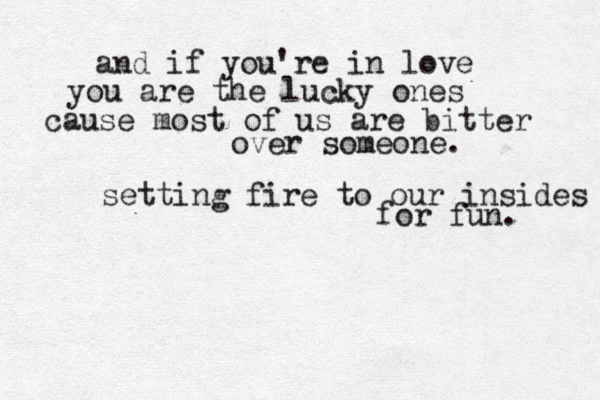 and if you're in love
you are the lucky ones
cause most of us are bitter
over someone.
setting fire to our insides
for fun.